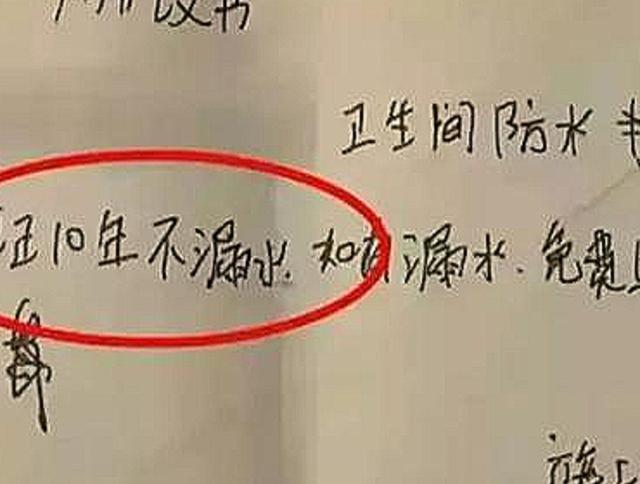 议书
卫生间防水
证10年不漏水.如有漏水.免费